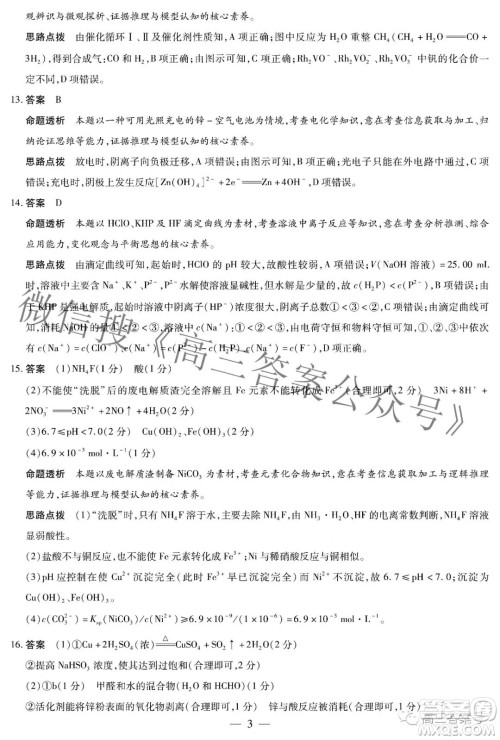 观辨识与微观探析、证据推理与模型认知的核心素养。
思路点拨 由催化循环Ⅰ、Ⅱ及催化剂的定义,A项正确;图中反应为H₂O重整CH₄(CH₄+H₂O══CO+
3H₂),得到合成气;CO和H₂,B项正确;由图示可知,C项正确;Rh₂VO⁻、Rh₂VO₂⁻、Rh₂VO₃⁻中钒的化合价一
定不同,D项错误。
13.答案 B
命题透析 本题以一种可用光照充电的锌-空气电池为情境,考查电化学知识,意在考查信息获取与加工、归
纳论证思维等能力,证据推理与模型认知的核心素养。
思路点拨 放电时,阴离子向负极迁移,A项错误;由图示可知,B项正确;光电子只能在外电路中通过,C项错
误;充电时,阴极上发生反应[Zn(OH)₄]²⁻+2e⁻══Zn+4OH⁻,D项错误。
14.答案 D
命题透析 本题以HClO、KHP及HF滴定曲线为素材,考查溶液中离子反应等知识,意在考查分析推测、综合
应用能力,变化观念与平衡思想的核心素养。
思路点拨 由滴定曲线可知,HClO的pH较大,故其电离能力最弱,A项错误;V(NaOH溶液)=25.00 mL
时,溶液中主要含有Na⁺、K⁺、P²⁻,P²⁻水解使溶液显碱性,但水解是少量的,故c(H₂P)<c(P²⁻),B项错误;由
于KHP是强电解质,故起始时溶液中阴离子(HP⁻)浓度最大,结合图示可知,总浓度①<③<②,C项错误;
当消耗NaOH的量①、②、③相等时,溶液中c(Na⁺)的关系为①=②=③,由电荷守恒和物料守恒可知,可
以有c(Na⁺)=c(F⁻)+c(ClO⁻)+c(P²⁻),D项正确。
15.答案 (1)NH₄F(1分) 酸(1分)
(2)不能使“洗脱”后的废电解质渣完全溶解且Fe元素不能转化成Fe³⁺(合理即可,2分) 3Ni+8H⁺+
2NO₃⁻══3Ni²⁺+2NO↑+4H₂O(2分)
(3)6.7≤pH<7.0(2分) Cu(OH)₂、Fe(OH)₃(2分)
(4)6.9×10⁻³ mol·L⁻¹(2分)
命题透析 本题以废电解质渣制备NiCO₃为素材,考查元素化合物知识,意在考查信息获取与加工及逻辑推理
等能力,证据推理与模型认知的核心素养。
思路点拨 (1)“洗脱”时,只有NH₄F溶于水,主要发生了脱去NH₄F的反应,由NH₃·H₂O、HF的电离常数判断,NH₄F溶液
显弱酸性。
(2)盐酸不与铜反应,也不能使Fe元素转化成Fe³⁺;Ni与稀硝酸反应与铜相似。
(3)pH应控制在使Cu²⁺沉淀完全(此时Fe³⁺早已沉淀完全)而Ni²⁺不沉淀,故6.7≤pH<7.0;沉淀为
Cu(OH)₂、Fe(OH)₃。
(4)c(CO₃²⁻)=Kₛₚ(NiCO₃)/c(Ni²⁺)≥6.9×10⁻⁹/(1×10⁻⁶)=6.9×10⁻³ mol·L⁻¹。
16.答案 (1)①Cu+2H₂SO₄(浓)══△CuSO₄+SO₂↑+2H₂O(2分)
②提高NaHSO₃的浓度(合理即可,1分)
(2)①b(1分) 甲醛和水的混合物(H₂O和HCHO)(1分)
②活化剂能将锌粉表面的氧化物剥离(合理即可,1分) 锌与酸反应(合理即可,1分)
— 3 —
微信搜《高三答案公众号》
高三答案